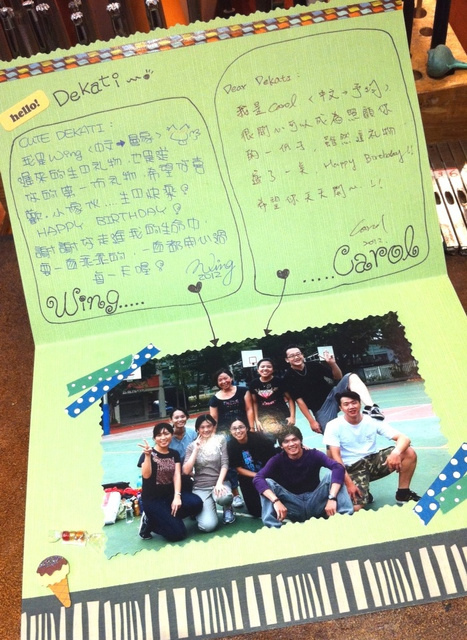 hello!
Dekati
CUTE DEKATI:
我是Wing <中文→
遲來的生日礼物,也是
你的第一布礼物,希望你會
生日快樂?
HAPPY BIRTHDAY?
謝謝你走進我的生命中,
Wing
2012
Wing.....
Dear Dekati:
我是Carol <中文→予均>,
很開心可以成為照顧你
的一份子,雖然這礼物
遲了一点,Happy Birthday!!
希望你天天開心!!
Carol
2012
.....Carol